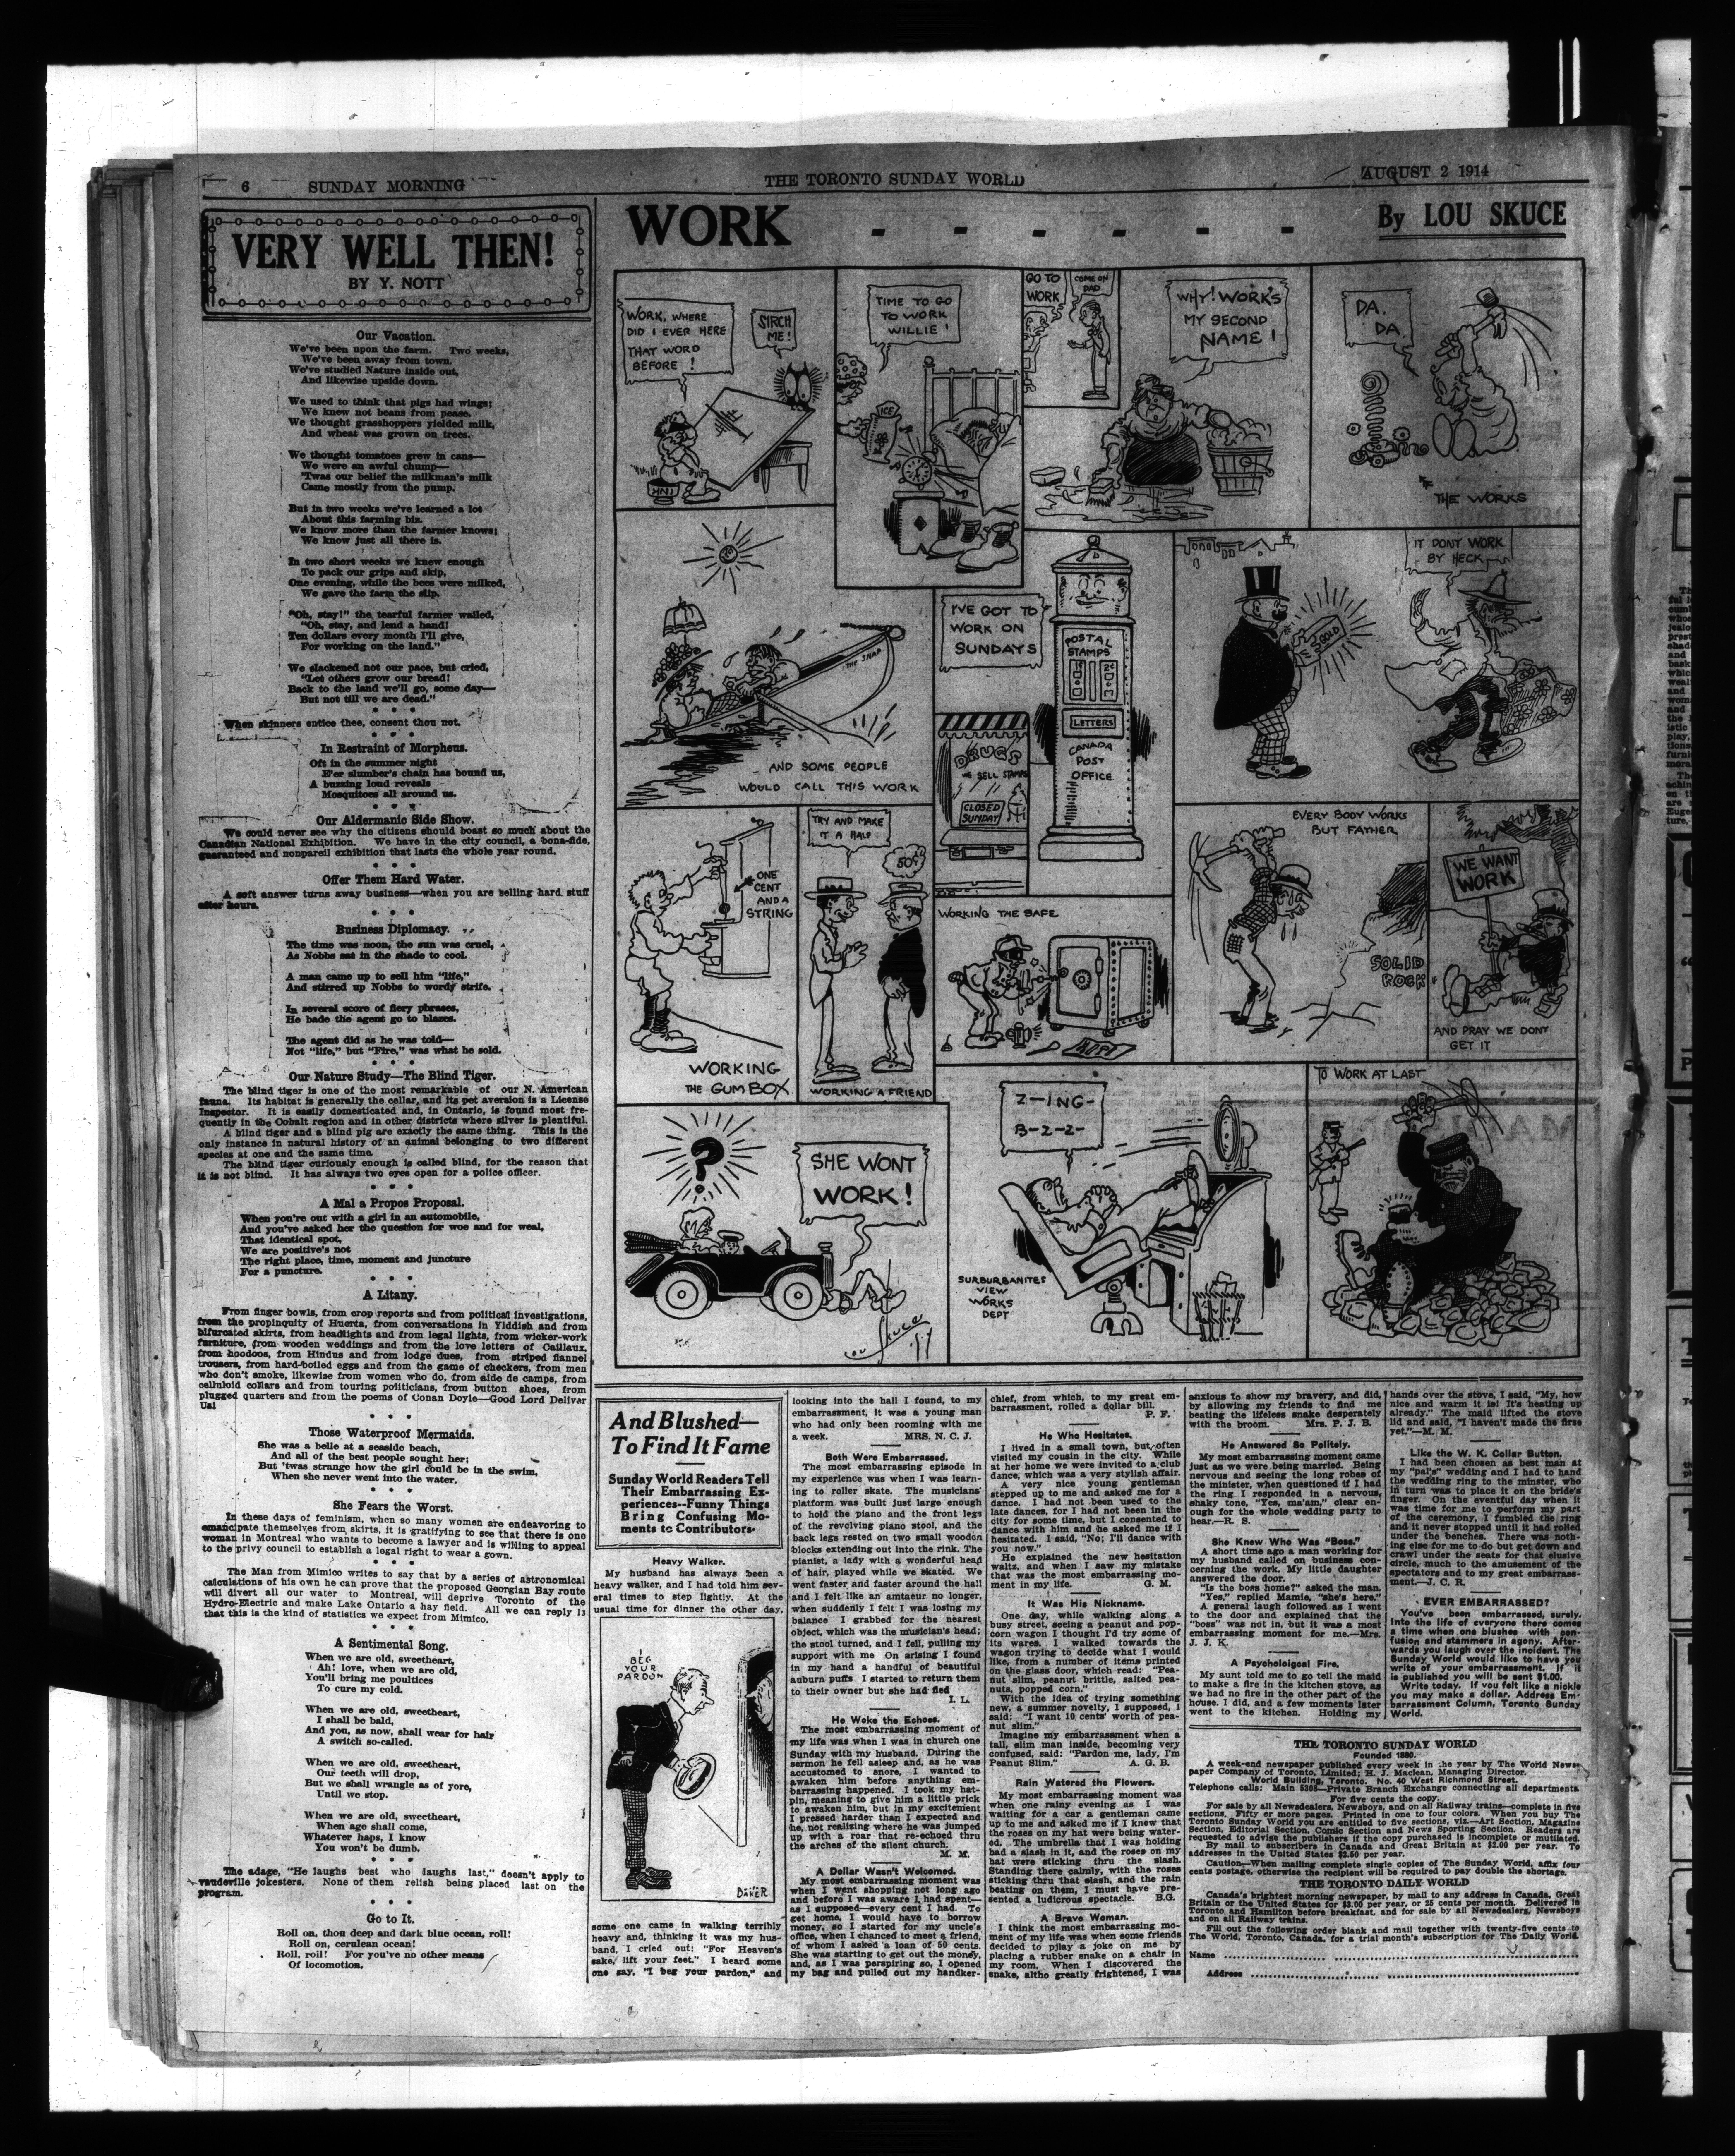 6 SUNDAY MORNING THE TORONTO SUNDAY WORLD AUGUST 2 1914
VERY WELL THEN!
BY Y. NOTT
Our Vacation.
We've been upon the farm. Two weeks,
We've been away from town.
We've studied Nature inside out,
And likewise upside down.
We used to think that pigs had wings;
We knew not beans from pease.
We thought grasshoppers yielded milk,
And wheat was grown on trees.
We thought tomatoes grew in cans—
We were an awful chump—
'Twas our belief the milkman's milk
Came mostly from the pump.
But in two weeks we've learned a lot
About this farming biz.
We know more than the farmer knows;
We know just all there is.
In two short weeks we knew enough
To pack our grips and skip,
One evening, while the bees were milked,
We gave the farm the slip.
"Oh, stay!" the tearful farmer wailed,
"Oh, stay, and lend a hand!
Ten dollars every month I'll give,
For working on the land."
We slackened not our pace, but cried,
"Let others grow our bread!
Back to the land we'll go, some day—
But not till we are dead."
* * *
When skinners entice thee, consent thou not.
* * *
In Restraint of Morpheus.
Oft in the summer night
E'er slumber's chain has bound us,
A buzzing loud reveals
Mosquitoes all around us.
* * *
Our Aldermanic Side Show.
We could never see why the citizens should boast so much about the
Canadian National Exhibition. We have in the city council, a bona-fide,
guaranteed and nonpareil exhibition that lasts the whole year round.
* * *
Offer Them Hard Water.
A soft answer turns away business—when you are selling hard stuff
after hours.
* * *
Business Diplomacy.
The time was noon, the sun was cruel,
As Nobbs sat in the shade to cool.
A man came up to sell him "life,"
And stirred up Nobbs to wordy strife.
In several score of fiery phrases,
He bade the agent go to blazes.
The agent did as he was told—
Not "life," but "Fire," was what he sold.
* * *
Our Nature Study—The Blind Tiger.
The blind tiger is one of the most remarkable of our N. American
fauna. Its habitat is generally the cellar, and its pet aversion is a License
Inspector. It is easily domesticated and, in Ontario, is found most fre-
quently in the Cobalt region and in other districts where silver is plentiful.
A blind tiger and a blind pig are exactly the same thing. This is the
only instance in natural history of an animal belonging to two different
species at one and the same time.
The blind tiger curiously enough is called blind, for the reason that
it is not blind. It has always two eyes open for a police officer.
* * *
A Mal a Propos Proposal.
When you're out with a girl in an automobile,
And you've asked her the question for woe and for weal,
That identical spot,
We are positive's not
The right place, time, moment and juncture
For a puncture.
* * *
A Litany.
From finger bowls, from crop reports and from political investigations,
from the propinquity of Huerta, from conversations in Yiddish and from
bifurcated skirts, from headlights and from legal lights, from wicker-work
furniture, from wooden weddings and from the love letters of Caillaux,
from hoodoos, from Hindus and from lodge dues, from striped flannel
trousers, from hard-boiled eggs and from the game of checkers, from men
who don't smoke, likewise from women who do, from aide de camps, from
celluloid collars and from touring politicians, from button shoes, from
plugged quarters and from the poems of Conan Doyle—Good Lord Deliver
Us!
* * *
Those Waterproof Mermaids.
She was a belle at a seaside beach,
And all of the best people sought her;
But 'twas strange how the girl could be in the swim,
When she never went into the water.
* * *
She Fears the Worst.
In these days of feminism, when so many women are endeavoring to
emancipate themselves from skirts, it is gratifying to see that there is one
woman in Montreal who wants to become a lawyer and is willing to appeal
to the privy council to establish a legal right to wear a gown.
* * *
The Man from Mimico writes to say that by a series of astronomical
calculations of his own he can prove that the proposed Georgian Bay route
will divert all our water to Montreal, will deprive Toronto of the
Hydro-Electric and make Lake Ontario a hay field. All we can reply is
that this is the kind of statistics we expect from Mimico.
* * *
A Sentimental Song.
When we are old, sweetheart,
Ah! love, when we are old,
You'll bring me poultices
To cure my cold.
When we are old, sweetheart,
I shall be bald,
And you, as now, shall wear for hair
A switch so-called.
When we are old, sweetheart,
Our teeth will drop,
But we shall wrangle as of yore,
Until we stop.
When we are old, sweetheart,
When age shall come,
Whatever haps, I know
You won't be dumb.
* * *
The adage, "He laughs best who laughs last," doesn't apply to
vaudeville jokesters. None of them relish being placed last on the
program.
* * *
Go to It.
Roll on, thou deep and dark blue ocean, roll!
Roll on, cerulean ocean!
Roll, roll! For you've no other means
Of locomotion.
WORK - - - - - - By LOU SKUCE
WORK, WHERE
DID I EVER HERE
THAT WORD
BEFORE!
SIRCH
ME!
INK
TIME TO GO
TO WORK
WILLIE!
ICE
GO TO
WORK
COME ON
DAD
WHY! WORK'S
MY SECOND
NAME!
DA.
DA.
THE WORKS
THE SNAP
AND SOME PEOPLE
WOULD CALL THIS WORK
I'VE GOT TO
WORK ON
SUNDAYS
POSTAL
STAMPS
1¢ 2¢
LETTERS
CANADA
POST
OFFICE
DRUGS
WE SELL STAMPS
CLOSED
SUNDAY
GOLD
IT DONT WORK
BY HECK
ONE
CENT
AND A
STRING
WORKING
THE GUM BOX
TRY AND MAKE
IT A HALF
50¢
WORKING A FRIEND
WORKING THE SAFE
EVERY BODY WORKS
BUT FATHER
SOLID
ROCK
WE WANT
WORK
AND PRAY WE DONT
GET IT
?
SHE WONT
WORK!
LOU SKUCE
Z-ING-
B-Z-Z-
SURBURBANITES
VIEW
WORKS
DEPT
TO WORK AT LAST
And Blushed—
To Find It Fame
Sunday World Readers Tell
Their Embarrassing Ex-
periences--Funny Things
Bring Confusing Mo-
ments to Contributors.
Heavy Walker.
My husband has always been a
heavy walker, and I had told him sev-
eral times to step lightly. At the
usual time for dinner the other day,
I
BEG
YOUR
PARDON
BAKER
some one came in walking terribly
heavy and, thinking it was my hus-
band, I cried out: "For Heaven's
sake, lift your feet." I heard some
one say, "I beg your pardon," and
looking into the hall I found, to my
embarrassment, it was a young man
who had only been rooming with me
a week. MRS. N. C. J.
Both Were Embarrassed.
The most embarrassing episode in
my experience was when I was learn-
ing to roller skate. The musicians'
platform was built just large enough
to hold the piano and the front legs
of the revolving piano stool, and the
back legs rested on two small wooden
blocks extending out into the rink. The
pianist, a lady with a wonderful head
of hair, played while we skated. We
went faster and faster around the hall
and I felt like an amtaeur no longer,
when suddenly I felt I was losing my
balance I grabbed for the nearest
object, which was the musician's head;
the stool turned, and I fell, pulling my
support with me On arising I found
in my hand a handful of beautiful
auburn puffs. I started to return them
to their owner but she had fled
I. L.
He Woke the Echoes.
The most embarrassing moment of
my life was when I was in church one
Sunday with my husband. During the
sermon he fell asleep and, as he was
accustomed to snore, I wanted to
awaken him before anything em-
barrassing happened. I took my hat-
pin, meaning to give him a little prick
to awaken him, but in my excitement
I pressed harder than I expected and
he, not realizing where he was jumped
up with a roar that re-echoed thru
the arches of the silent church.
M. M.
A Dollar Wasn't Welcomed.
My most embarrassing moment was
when I went shopping not long ago
and before I was aware I had spent—
as I supposed—every cent I had. To
get home, I would have to borrow
money, so I started for my uncle's
office, when I chanced to meet a friend,
of whom I asked a loan of 50 cents.
She was starting to get out the money,
and, as I was perspiring so, I opened
my bag and pulled out my handker-
chief, from which, to my great em-
barrassment, rolled a dollar bill.
P. F.
He Who Hesitates.
I lived in a small town, but often
visited my cousin in the city. While
at her home we were invited to a club
dance, which was a very stylish affair.
A very nice young gentleman
stepped up to me and asked me for a
dance. I had not been used to the
late dances, for I had not been in the
city for some time, but I consented to
dance with him and he asked me if I
hesitated. I said, "No; I'll dance with
you now."
He explained the new hesitation
waltz, and when I saw my mistake
that was the most embarrassing mo-
ment in my life. G. M.
It Was His Nickname.
One day, while walking along a
busy street, seeing a peanut and pop-
corn wagon I thought I'd try some of
its wares. I walked towards the
wagon trying to decide what I would
like, from a number of items printed
on the glass door, which read: "Pea-
nut slim, peanut brittle, salted pea-
nuts, popped corn."
With the idea of trying something
new, a summer novelty, I supposed, I
said: "I want 10 cents' worth of pea-
nut slim."
Imagine my embarrassment when a
tall, slim man inside, becoming very
confused, said: "Pardon me, lady, I'm
Peanut Slim," A. G. B.
Rain Watered the Flowers.
My most embarrassing moment was
when one rainy evening as I was
waiting for a car a gentleman came
up to me and asked me if I knew that
the roses on my hat were being water-
ed. The umbrella that I was holding
had a slash in it, and the roses on my
hat were sticking thru the slash.
Standing there calmly, with the roses
sticking thru that slash, and the rain
beating on them, I must have pre-
sented a ludicrous spectacle. B.G.
A Brave Woman.
I think the most embarrassing mo-
ment of my life was when some friends
decided to pjlay a joke on me by
placing a rubber snake on a chair in
my room. When I discovered the
snake, altho greatly frightened, I was
anxious to show my bravery, and did,
by allowing my friends to find me
beating the lifeless snake desperately
with the broom. Mrs. P. J. B.
He Answered So Politely.
My most embarrassing moment came
just as we were being married. Being
nervous and seeing the long robes of
the minister, when questioned if I had
the ring I responded in a nervous,
shaky tone, "Yes, ma'am," clear en-
ough for the whole wedding party to
hear.—R. S.
She Knew Who Was "Boss."
A short time ago a man working for
my husband called on business con-
cerning the work. My little daughter
answered the door.
"Is the boss home?" asked the man.
"Yes," replied Mamie, "she's here."
A general laugh followed as I went
to the door and explained that the
"boss" was not in, but it was a most
embarrassing moment for me.—Mrs.
J. J. K.
A Psycholoigcal Fire.
My aunt told me to go tell the maid
to make a fire in the kitchen stove, as
we had no fire in the other part of the
house. I did, and a few moments later
went to the kitchen. Holding my
hands over the stove, I said, "My, how
nice and warm it is! It's heating up
already." The maid lifted the stove
lid and said, "I haven't made the firse
yet."—M. M.
Like the W. K. Collar Button.
I had been chosen as best man at
my "pal's" wedding and I had to hand
the wedding ring to the minster, who
in turn was to place it on the bride's
finger. On the eventful day when it
was time for me to perform my part
of the ceremony, I fumbled the ring
and it never stopped until it had rolled
under the benches. There was noth-
ing else for me to do but get down and
crawl under the seats for that elusive
circle, much to the amusement of the
spectators and to my great embarrass-
ment.—J. C. R.
EVER EMBARRASSED?
You've been embarrassed, surely.
Into the life of everyone there comes
a time when one blushes with con-
fusion and stammers in agony. After-
wards you laugh over the incident. The
Sunday World would like to have you
write of your embarrassment. If it
is published you will be sent $1.00.
Write today. If you felt like a nickle
you may make a dollar. Address Em-
barrassment Column, Toronto Sunday
World.
THE TORONTO SUNDAY WORLD
Founded 1880.
A week-end newspaper published every week in the year by The World News-
paper Company of Toronto, Limited; H. J. Maclean, Managing Director.
World Building, Toronto. No. 40 West Richmond Street.
Telephone calls: Main 5308—Private Branch Exchange connecting all departments.
For five cents the copy.
For sale by all Newsdealers, Newsboys, and on all Railway trains—complete in five
sections. Fifty or more pages. Printed in one to four colors. When you buy The
Toronto Sunday World you are entitled to five sections, viz.—Art Section, Magazine
Section, Editorial Section, Comic Section and News Sporting Section. Readers are
requested to advise the publishers if the copy purchased is incomplete or mutilated.
By mail to subscribers in Canada and Great Britain at $2.00 per year. To
addresses in the United States $2.50 per year.
Caution:—When mailing complete single copies of The Sunday World, affix four
cents postage, otherwise the recipient will be required to pay double the shortage.
THE TORONTO DAILY WORLD
Canada's brightest morning newspaper, by mail to any address in Canada, Great
Britain or the United States for $3.00 per year, or 25 cents per month. Delivered in
Toronto and Hamilton before breakfast, and for sale by all Newsdealers, Newsboys
and on all Railway trains.
Fill out the following order blank and mail together with twenty-five cents to
The World, Toronto, Canada, for a trial month's subscription for The Daily World.
Name
Address